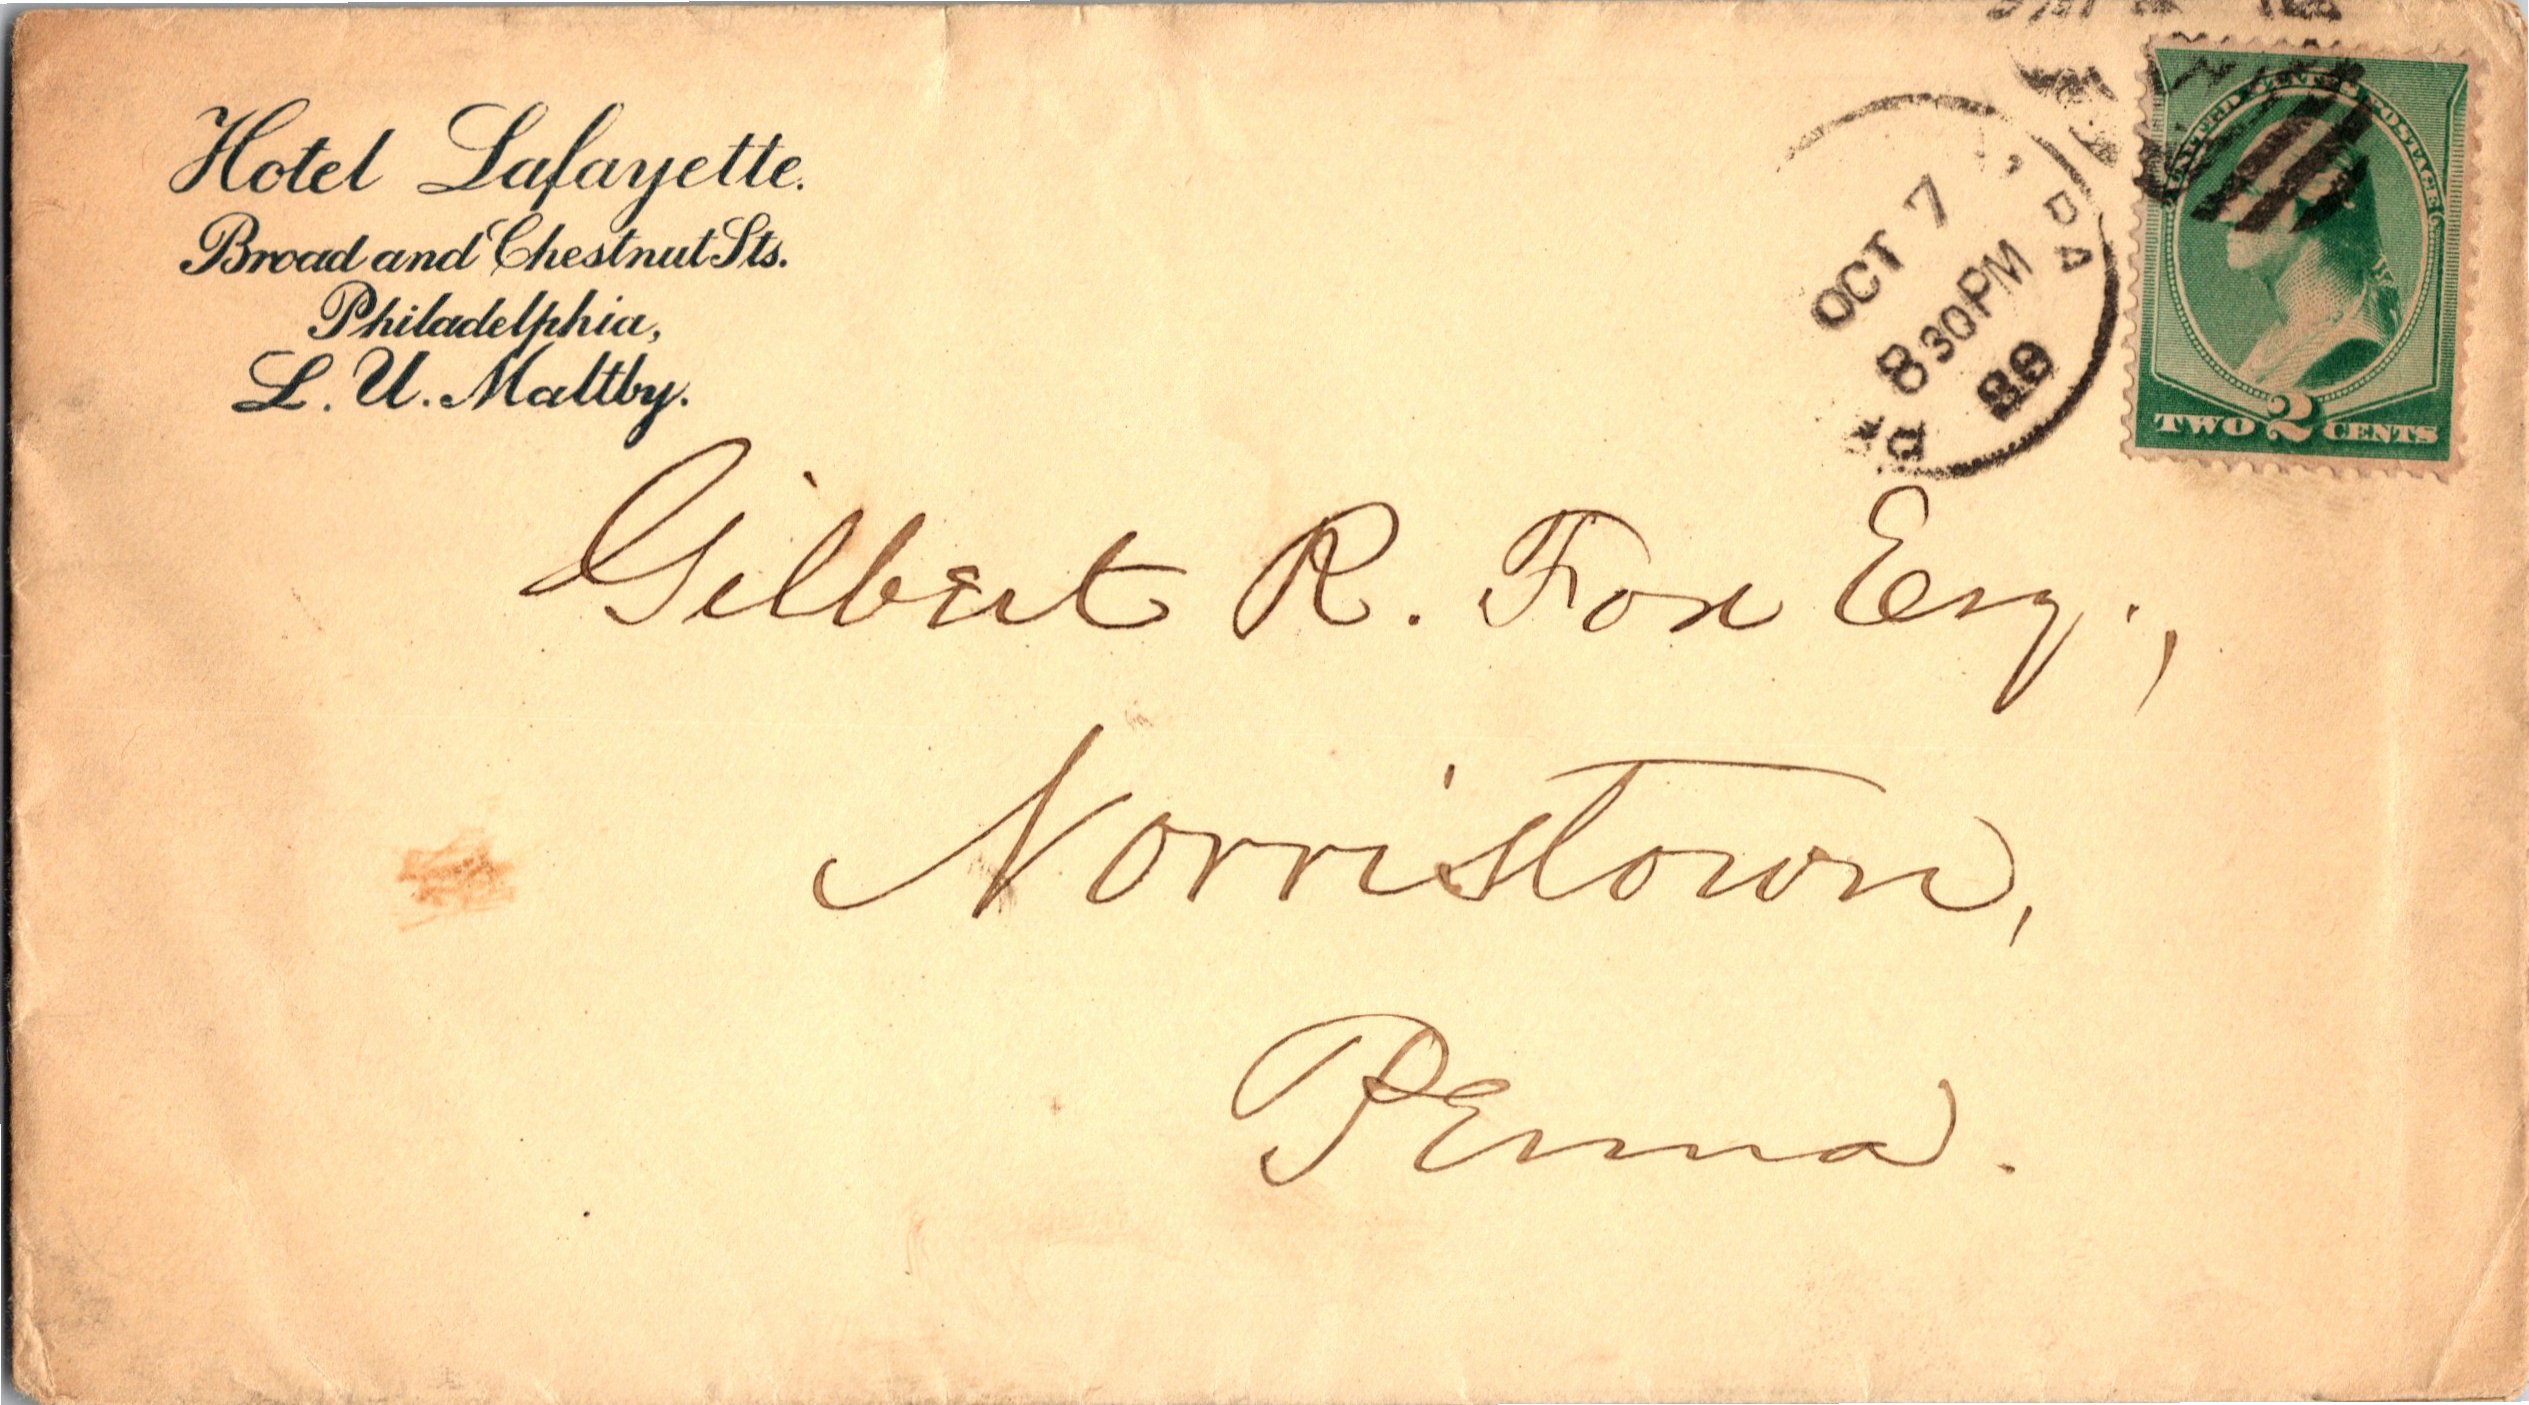 Hotel Lafayette.
Broad and Chestnut Sts.
Philadelphia,
L. U. Maltby.
OCT 7
8 30 PM
UNITED STATES POSTAGE
TWO 2 CENTS
Gilbert R. Fox Esq.,
Norristown,
Penna.